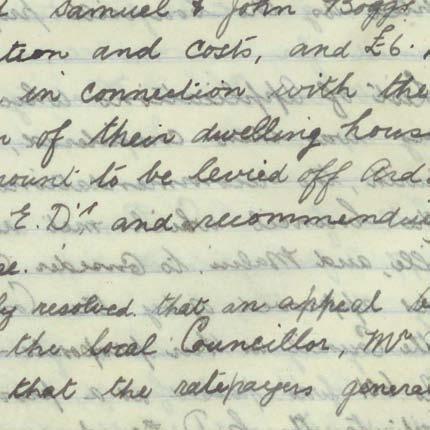 Samuel & John Boggs
tion and costs, and £6.
in connection with the
of their dwelling hous
ount to be levied off Ard
E. D's and recommendi
e.
ly resolved that an appeal b
the local Councillor, Mr
that the ratepayers genera